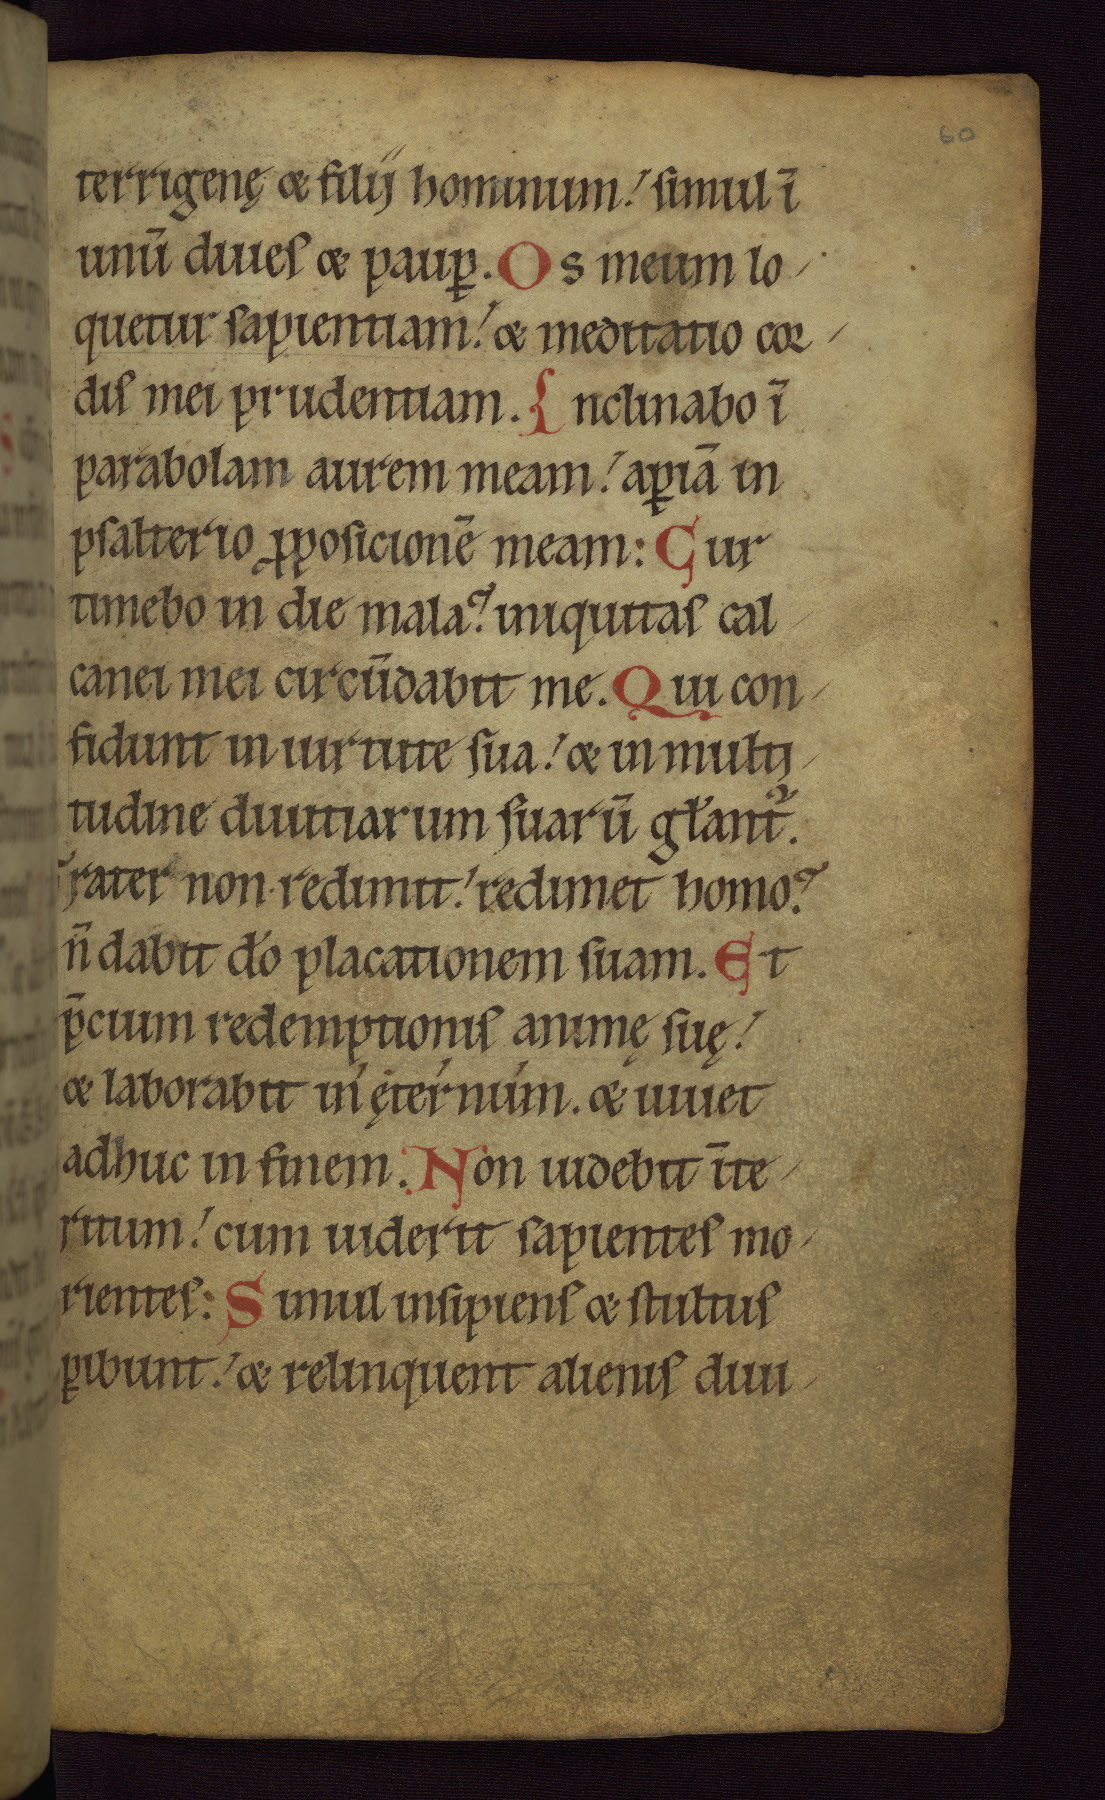 60
terrigenę & filij hominum! simul ī
unū diues & paup̱. Os meum lo
quetur sapientiam! & meditatio cor
dis mei prudentiam. Inclinabo ī
parabolam aurem meam! ap̱iā in
psalterio ꝓposicionē meam: Cur
timebo in die mala? iniquitas cal
canei mei circūdabit me. Qui con
fidunt in uirtute sua! & in multi
tudine diuitiarum suarū gl̄ant᷑.
frater non redimit! redimet homo?
n̄ dabit dō placationem suam. Et
p̄cium redemptionis animę suę!
& laborabit in ęternum. & uiuet
adhuc in finem. Non uidebit īte
ritum! cum uiderit sapientes mo
rientes: Simul insipiens & stultus
ꝑibunt! & relinquent alienis diui